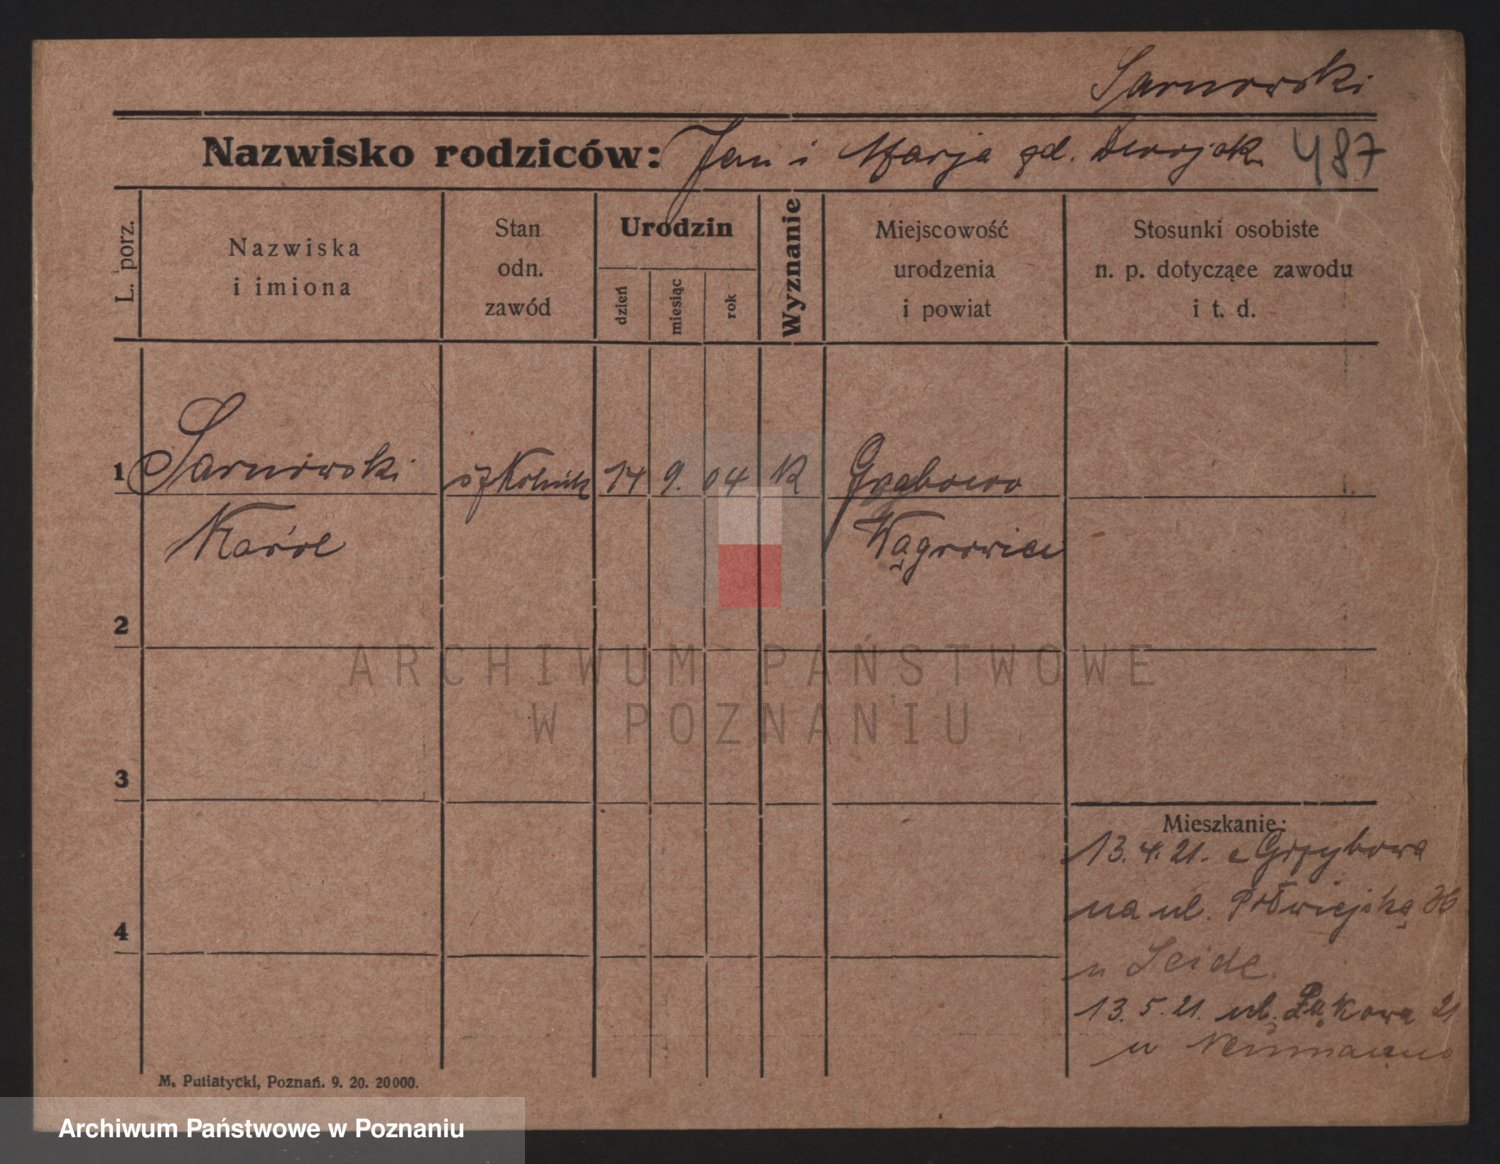 Sarnowski
Nazwisko rodziców: Jan i Marja gd. Dworjak 487
L. porz.
Nazwiska
i imiona
Stan
odn.
zawód
Urodzin
dzień
miesiąc
rok
Wyznanie
Miejscowość
urodzenia
i powiat
Stosunki osobiste
n. p. dotyczące zawodu
i t. d.
1 Sarnowski szkolnik 14 9. 04 K Grabowo
Karol Wągrowiec
2
3
4
Mieszkanie:
13.4.21. z Grzybowa
na ul. Półwiejską 36
u Seide
13.5.21. ul. Łąkowa 21
u Neumanna
M. Putiatycki, Poznań. 9. 20. 20000.
ARCHIWUM PAŃSTWOWE
W POZNANIU
Archiwum Państwowe w Poznaniu